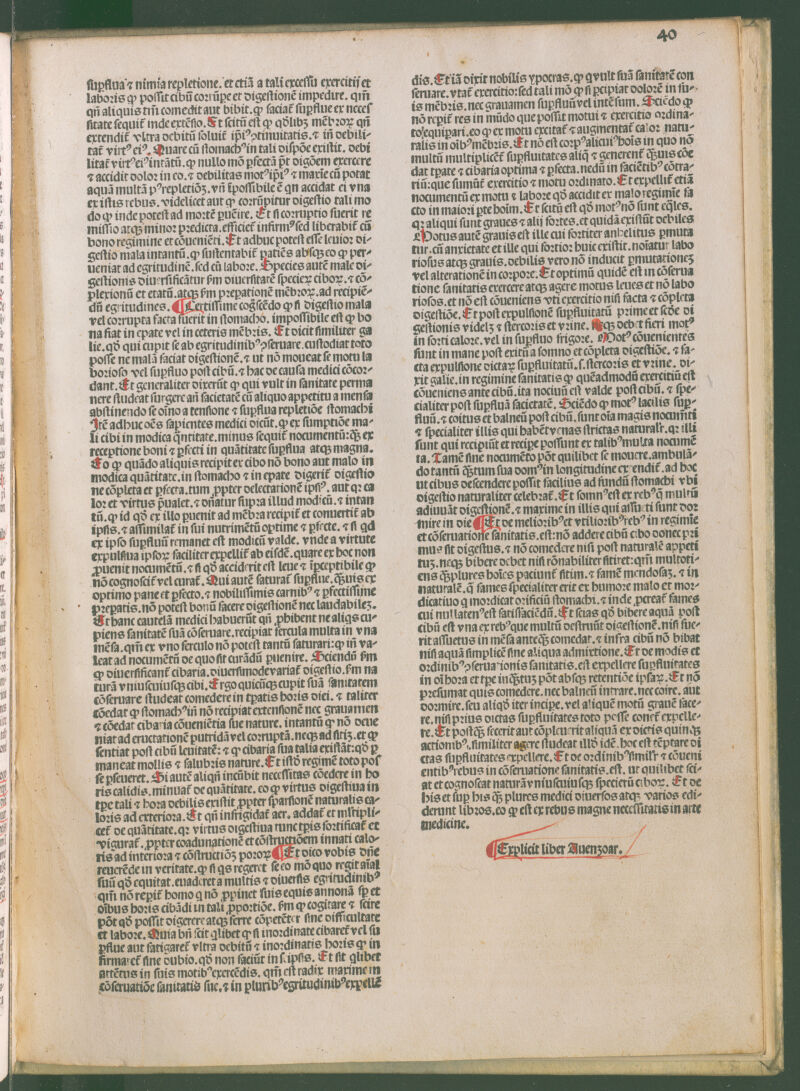 40
suꝑflua ⁊ nimia repletione. et etiā a tali excessu exercitij et
laboris ꝙ possit cibū corrūpe et digestionē impedire. qm̄
qn̄ aliquis tm̄ comedit aut bibit. ꝙ faciat suꝑflue ex neces
sitate sequit᷑ inde extēsio.
extendit᷑ vltra debitū soluit᷑
litat᷑ ꝙ nullo mō ꝑfectā pt̄ digōem exercere
⁊ accidit dolor in co. ⁊ debilitas
ex istis rebus. videlicet aut ꝙ corrūpitur digestio tali mo
do ꝙ inde potest ad mortē puēire. Et si corruptio fuerit re
missio atqꝫ minor predicta. efficiet᷑ sed liberabit᷑ cū
bono regimine et cōueniēti. Et adhuc potest esse leuior di-
gestio mala intantū. ꝙ sustentabit᷑ patiēs absqꝫ eo ꝙ per-
ueniat ad egritudinē. sed cū labore. Species autē male di-
gestionis diuersificātur ẜm diuersitatē specieꝝ ciboꝝ. ⁊ cō-
plexionū et etatū. atqꝫ ẜm p̄epationē mēbroꝝ. ad recipiē-
dū egritudines. ¶ Certissime cogscēdo ꝙ si digestio mala
vel corrupta facta fuerit in stomacho. impossibile est ꝙ bo
na fiat in epate vel in ceteris mēbris. Et dicit similiter ga
lie. qd̄ qui cupit se ab egritudinibꝰ ꝯseruare. custodiat toto
posse ne malā faciat digestionē. ⁊ ut nō moueat se motu la
borioso vel suꝑfluo post cibū. ⁊ hac de causa medici cōcor-
dant. Et generaliter dixerūt ꝙ qui vult in sanitate perma
nere studeat surgere an̄ sacietatē cū aliquo appetitu a mensa
abstinendo se oīno a tensione ⁊ suꝑflua repletiōe stomachi
Itē adhuc oēs sapientes medici dicūt. ꝙ ex sumptiōe ma-
li cibi in modica q̄ntitate. minus sequit᷑ nocumentū: qꝫ ex
receptione boni ⁊ ꝑfecti in quātitate suꝑflua atqꝫ magna.
Eo ꝙ quādo aliquis recipit ex cibo nō bono aut malo in
modica quātitate. in stomacho ⁊ in epate digerit᷑ digestio
ne cōpleta et ꝑfecta. tum ꝓpter delectationē ipsiꝰ. aut qꝛ ca
lor et virtus p̄ualet. ⁊ dn̄atur supra illud modicū. ⁊ intan
tū. ꝙ id qd̄ ex illo puenit ad mēbra recipit᷑ et conuertit᷑ ab
ipsis. ⁊ assimilat᷑ in sui nutrimētū optime ⁊ ꝑfecte. ⁊ si qd̄
ex ipso suꝑfluū remanet est modicū valde. vnde a virtute
expulsiua ipsoꝝ faciliter expellit᷑ ab eisdē. quare ex hoc non
ꝓuenit nocumētū. ⁊ si qd̄ acciderit est leue ⁊ īꝑceptibile ꝙ
nō cognoscit᷑ vel curat᷑. Qui autē saturat᷑ suꝑflue. qꝫuis ex
optimo pane et ꝑfecto. ⁊ nobilissimis carnibꝰ ⁊ ꝑfectissime
p̄epatis. nō potest bonū facere digestionē nec laudabilez.
Et hanc cautelā medici habuerūt qn̄ ꝓhibent ne aliqs cu-
piens sanitatē suā cōseruare. recipiat fercula multa in vna
mēsa. qm̄ ex vno ferculo nō potest tantū saturari: ꝙ in va-
leat ad nocumētū de quo sit curādū puenire. Sciendū ẜm
ꝙ diuersificant᷑ cibaria. diuersimode variat᷑ digestio. ẜm na
turā vniuscuiusqꝫ cibi. Ergo quicūqꝫ cupit suā sanitatem
cōseruare studeat comedere in tpatis horis diei. ⁊ taliter
cōedat ꝙ stomachꝰ in̄ nō recipiat extensionē nec grauamen
⁊ cōedat cibaria cōueniētia sue nature. intantū ꝙ nō deue
niat ad eructationē putridā vel corruptā. neqꝫ ad sitiꝫ. et ꝙ
sentiat post cibū leuitatē: ⁊ ꝙ cibaria sua talia existāt: qd̄ ꝑ
maneat mollis ⁊ salubris nature. Et istō regimē toto pos
se ꝑseueret. Si autē aliquē incūbit necessitas cōedere in ho
ris calidis. minuat᷑ de quātitate. eo ꝙ virtus digestiua in
tpe tali ⁊ hora debilis existit ꝓpter sparsionē naturalis ca-
loris ad exteriora. Et qn̄ infrigidat᷑ aer. addat᷑ et mltipli-
cet᷑ de quātitate. qꝛ virtus digestiua tunc tpis fortificat᷑ et
vigorat᷑. ꝓpter coadunationē et cōstructiōem innati calo-
ris ad interiora ⁊ cōstructiōꝫ pororꝝ ¶ Et dico vobis dn̄e
reuerēde in veritate. ꝙ si qs regeret se eo mō quo regit aīal
suū qd̄ equitat. euaderet a multis ⁊ diuersis egritudinibꝰ
qm̄ nō repit᷑ homo q̄ nō ꝓpinet suis equis annonā sp̄ et
oībus horis cibādi in tali ꝓportiōe. ẜm ꝙ cogitare ⁊ scire
pōt qd̄ possit digerere atqꝫ ferre cōpetēter sine difficultate
et labore. Quia bn̄ scit qlibet ꝙ si inordinate cibaret᷑ vel su
ꝑflue aut fatigaret᷑ vltra debitū ⁊ inordinatis horis ꝙ in
firmaret᷑ sine dubio. qd̄ non faciūt in .s. ipsis. Et sit qlibet
attētus in suis motibꝰ exercēdis. qm̄ est radix maxime in
cōseruatiōe sanitatis sue. ⁊ in pluribꝰ egritudinibꝰ expellē
dis. Etiā dixit nobilis ypocras. ꝙ qvult suā sanitatē con
seruare. vtat᷑ exercitio: sed tali mō ꝙ si ꝑcipiat dolorē in su-
is mēbris. nec grauamen suꝑfluū vel intēsum. Sciēdo ꝙ
nō repit᷑ res in mūdo que possit motui ⁊ exercitio ordina-
to equipari. eo ꝙ ex motu excitat᷑ ⁊ augmentat᷑ calor natu-
ralis in oībꝰ mēbris. Et nō est corpꝰ alicuiꝰ hoīs in quo nō
multū multiplicēt᷑ suꝑfluitates aliq̄ ⁊ generent᷑ qꝫuis cōe
dat tpate ⁊ cibaria optima ⁊ ꝑfecta. nedū in faciētibꝰ cōtra-
riū: que sumūt᷑ exercitio ⁊ motu ordinato. Et expellit᷑ etiā
nocumentū ex motu ⁊ labore qd̄ accidit ex malo regimie fa
cto in maiori pte hoīm. Et scitū est qd̄ motꝰ nō sunt eq̄les.
qꝛ aliqui sunt graues ⁊ alij fortes. et quidā existūt debiles
Motus autē grauis est ille cui fortiter anhelitus pmuta
tur. cū anxietate et ille qui fortior huic existit. noīatur labo
riosus atqꝫ grauis. debilis vero nō inducit pmutationeꝫ
vel alterationē in corpore. Et optimū quidē est in cōserua
tione sanitatis exercere atqꝫ agere motus leues et nō labo
riosos. et nō est cōueniens vti exercitio nisi facta ⁊ cōpleta
digestiōe. Et post expulsionē suꝑfluitatū prime et scd̄e di
gestionis videlꝫ ⁊ stercoris et vrine. Neqꝫ debet fieri motꝰ
in forti calore. vel in suꝑfluo frigore. Motꝰ cōuenientes
sunt in mane post exitū a somno et cōpleta digestiōe. ⁊ fa-
cta expulsione dictaꝝ suꝑfluitatū. s. stercoris et vrine. di-
xit galie. in regimine sanitatis ꝙ quēadmodū exercitiū est
cōueniens ante cibū. ita nociuū est valde post cibū. ⁊ spe-
cialiter post suꝑfluā sacietatē. Sciēdo ꝙ motꝰ facilis suꝑ-
fluū. ⁊ coitus et balneū post cibū. sunt oīa magis nocumēti
⁊ specialiter illis qui habēt venas strictas naturalr̄. qꝛ illi
sunt qui recipiūt et recipe possunt ex talibꝰ multa nocumē
ta. Tamē sine nocumēto pōt quilibet se mouere. ambulā-
do tantū qꝫtum sua domꝰ in longitudine extendit᷑. ad hoc
ut cibus descendere possit facilius ad fundū stomachi vbi
digestio naturaliter celebrat᷑. Et somnꝰ est ex rebꝰ q̄ multū
adiuuāt digestionē. ⁊ maxime in illis qui assueti sunt dor
mire in die ¶ Et de meliorībꝰ et vtilioribꝰ rebꝰ in regimie
et cōseruatione sanitatis. est: nō addere cibū cibo donec pri
mus sit digestus. ⁊ nō comedere nisi post naturalē appeti
tuꝫ. neqꝫ bibere debet nisi rōnabiliter sitiret: qm̄ multoti-
ens qꝫplures hoīes paciunt᷑ sitim. ⁊ famē mendosaꝫ. ⁊ in
naturalē. q̄ fames specialiter erit ex humore malo et mor-
dicatiuo q̄ mordicat orificiū stomachi. ⁊ inde ꝓcreat᷑ fames
cui nullatenꝰ est satisfaciēdū. Et scias qd̄ bibere aquā post
cibū est vna ex rebꝰ que multū destruūt digestionē. nisi fue-
rit assuetus in mēsa anteqꝫ comedat. ⁊ infra cibū nō bibat
nisi aquā simplicē sine aliqua admixtione. Et de modis et
ordinibꝰ ꝯseruationis sanitatis. est expellere suꝑfluitates
in oī hora et tpe inqꝫtuꝫ pōt absqꝫ retentiōe ipsaꝝ. Et nō
presumat quis comedere. nec balneū intrare. nec coire. aut
dormire. seu aliqd̄ iter incipe. vel aliquē motū grauē face-
re. nisi prius dictas suꝑfluitates toto posse conet᷑ expelle-
re. Et postqꝫ fecerit aut cōpleuerit aliquā ex dictis quinqꝫ
actionibꝰ. similiter agere studeat illd̄ idē. hoc est tēptare di
ctas suꝑfluitates expellere. Et de ordinibꝰ similr̄ ⁊ cōueni
entibꝰ rebus in cōseruatione sanitatis. est. ut quilibet sci-
at et cognoscat naturā vniuscuiusqꝫ specierū ciboꝝ. Et de
his et sup his qꝫ plures medici diuersos atqꝫ varios edi-
derunt libros. eo ꝙ est ex rebus magne necessitatis in arte
medicine.
¶ Explicit liber Auenzoar.